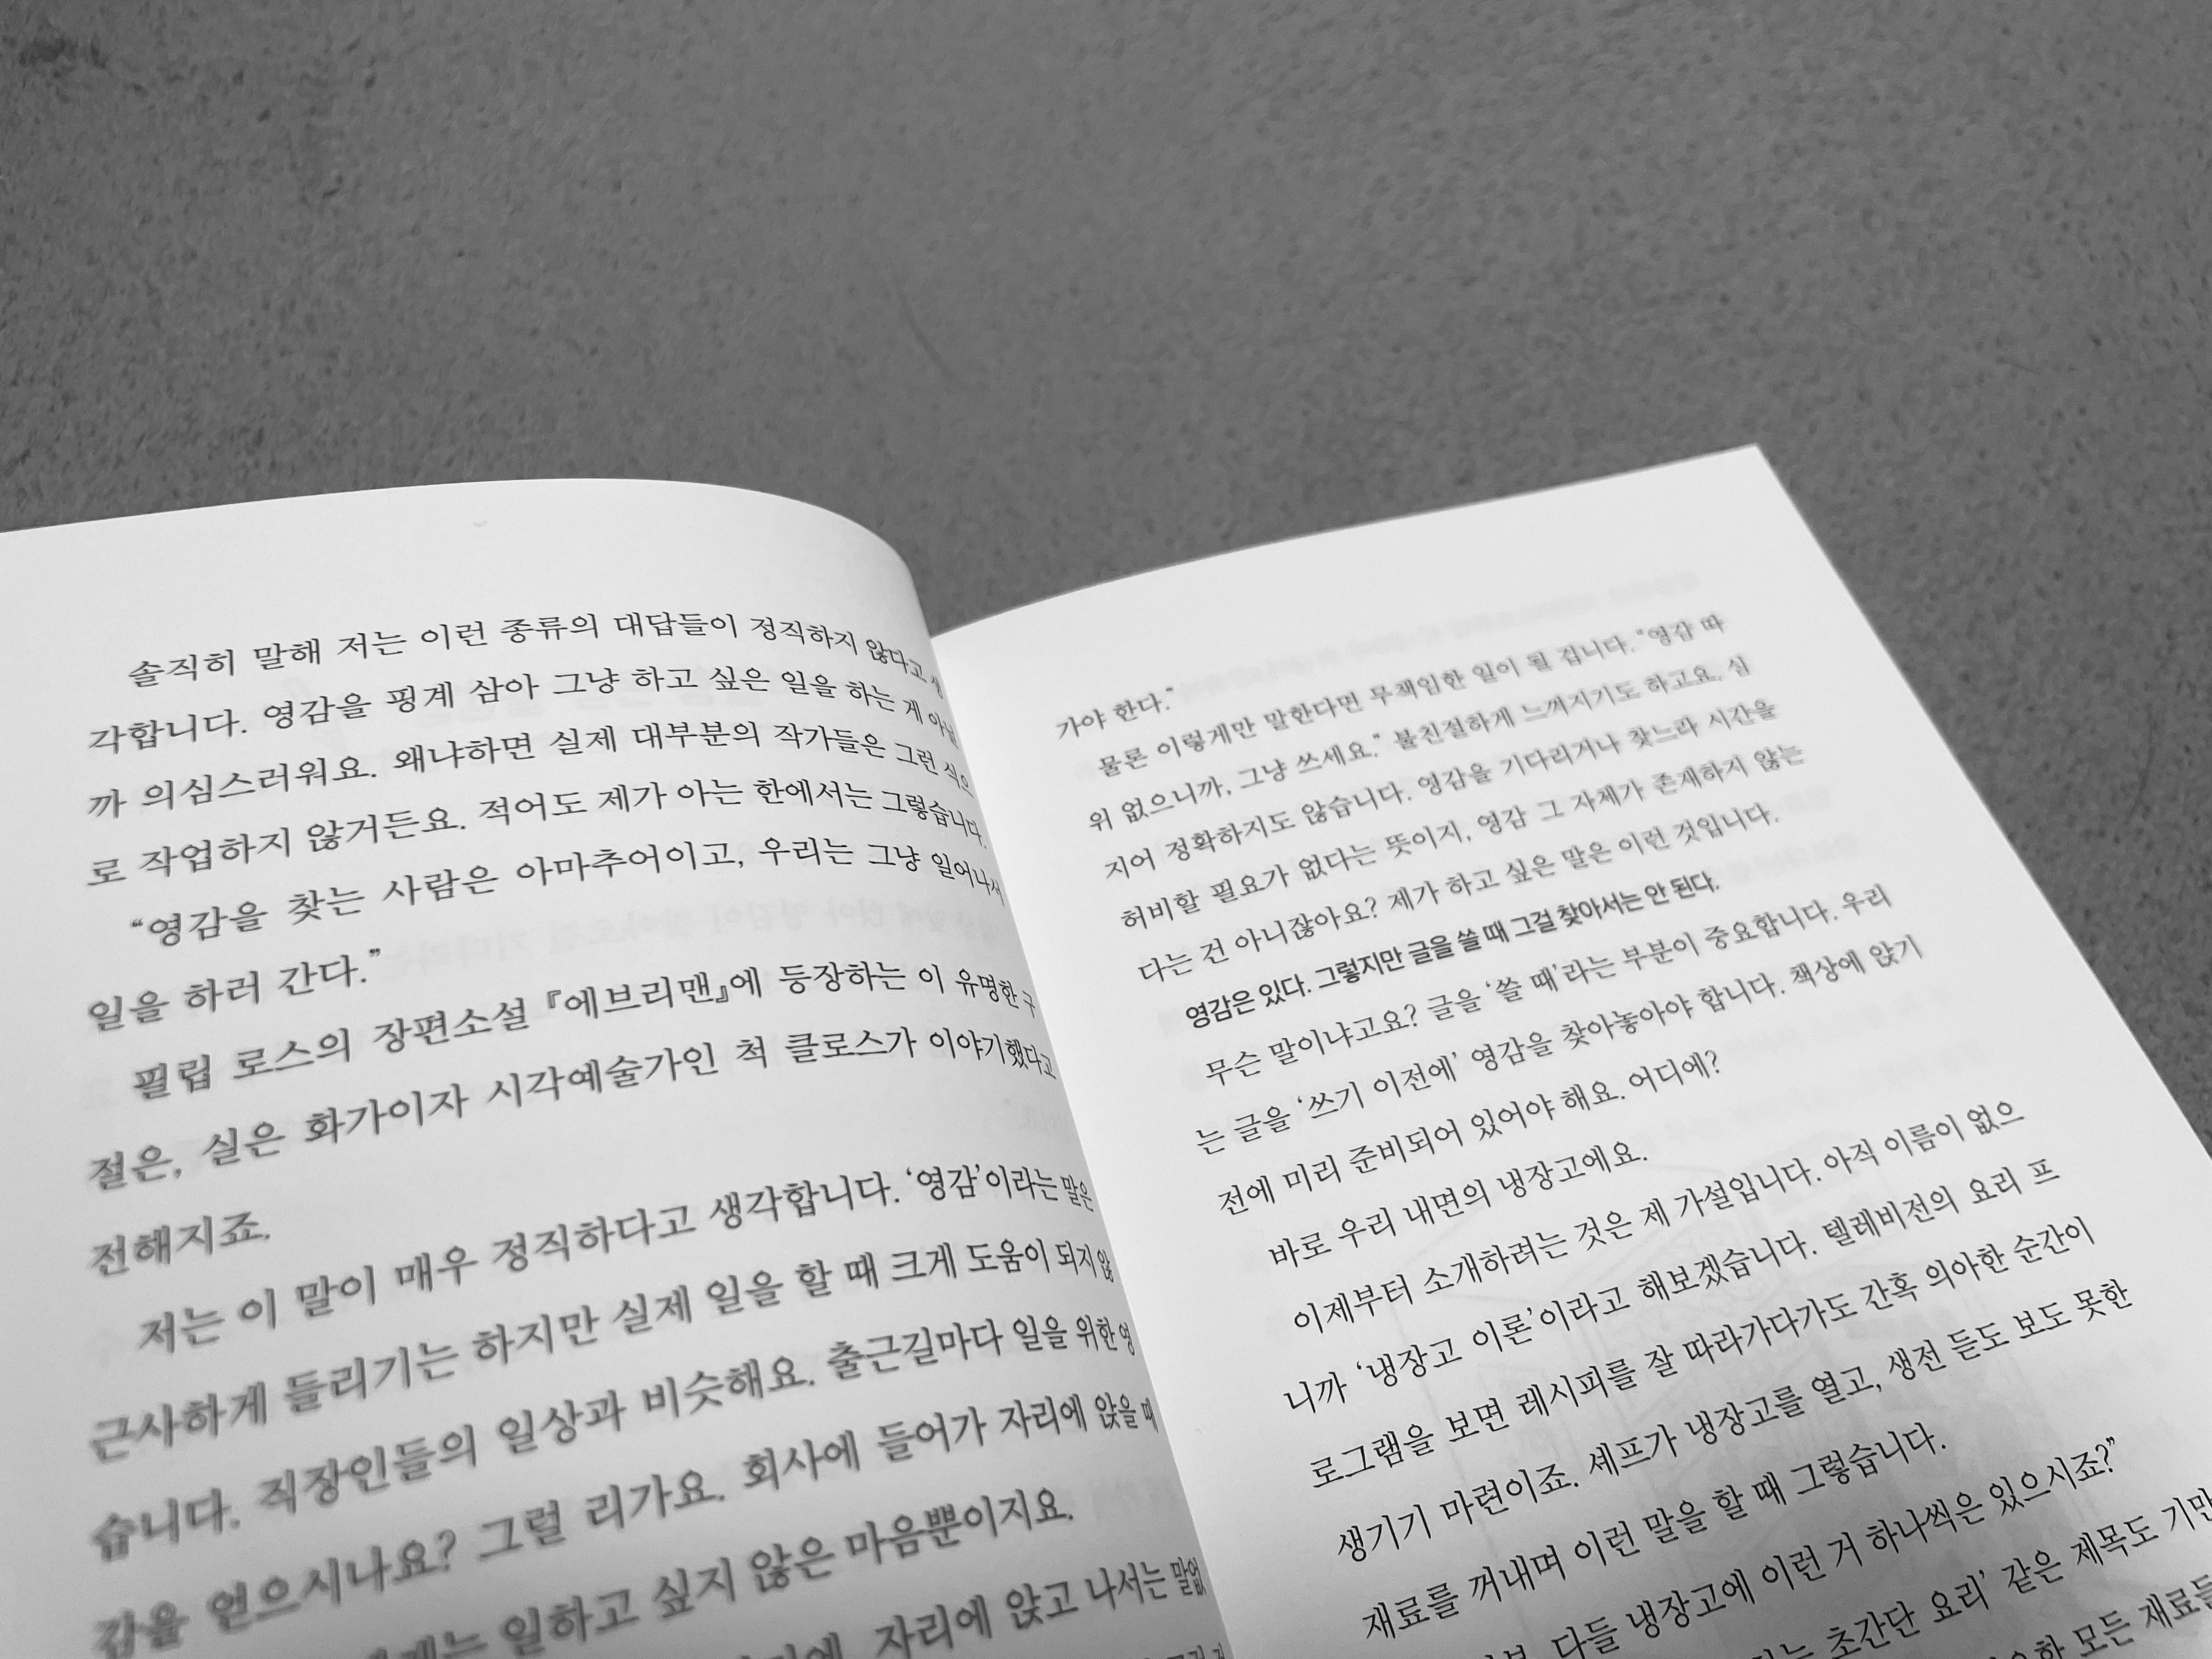 솔직히 말해 저는 이런 종류의 대답들이 정직하지 않다고 생
각합니다. 영감을 핑계 삼아 그냥 하고 싶은 일을 하는 게 아닐
까 의심스러워요. 왜냐하면 실제 대부분의 작가들은 그런 식으
로 작업하지 않거든요. 적어도 제가 아는 한에서는 그렇습니다.
“영감을 찾는 사람은 아마추어이고, 우리는 그냥 일어나서
일을 하러 간다.”
필립 로스의 장편소설 『에브리맨』에 등장하는 이 유명한 구
절은, 실은 화가이자 시각예술가인 척 클로스가 이야기했다고
전해지죠.
저는 이 말이 매우 정직하다고 생각합니다. ‘영감’이라는 말은
근사하게 들리기는 하지만 실제 일을 할 때 크게 도움이 되지 않
습니다. 직장인들의 일상과 비슷해요. 출근길마다 일을 위한 영
감을 얻으시나요? 그럴 리가요. 회사에 들어가 자리에 앉을 때
일하고 싶지 않은 마음뿐이지요.
자리에 앉고 나서는 말없
가야 한다.”
물론 이렇게만 말한다면 무책임한 일이 될 겁니다. “영감 따
위 없으니까, 그냥 쓰세요.” 불친절하게 느껴지기도 하고요. 심
지어 정확하지도 않습니다. 영감을 기다리거나 찾느라 시간을
허비할 필요가 없다는 뜻이지, 영감 그 자체가 존재하지 않는
다는 건 아니잖아요? 제가 하고 싶은 말은 이런 것입니다.
영감은 있다. 그렇지만 글을 쓸 때 그걸 찾아서는 안 된다.
무슨 말이냐고요? 글을 ‘쓸 때’라는 부분이 중요합니다. 우리
는 글을 ‘쓰기 이전에’ 영감을 찾아놓아야 합니다. 책상에 앉기
전에 미리 준비되어 있어야 해요. 어디에?
바로 우리 내면의 냉장고에요.
이제부터 소개하려는 것은 제 가설입니다. 아직 이름이 없으
니까 ‘냉장고 이론’이라고 해보겠습니다. 텔레비전의 요리 프
로그램을 보면 레시피를 잘 따라가다가도 간혹 의아한 순간이
생기기 마련이죠. 셰프가 냉장고를 열고, 생전 듣도 보도 못한
재료를 꺼내며 이런 말을 할 때 그렇습니다.
다들 냉장고에 이런 거 하나씩은 있으시죠?”
초간단 요리’ 같은 제목도 기만
모든 재료들